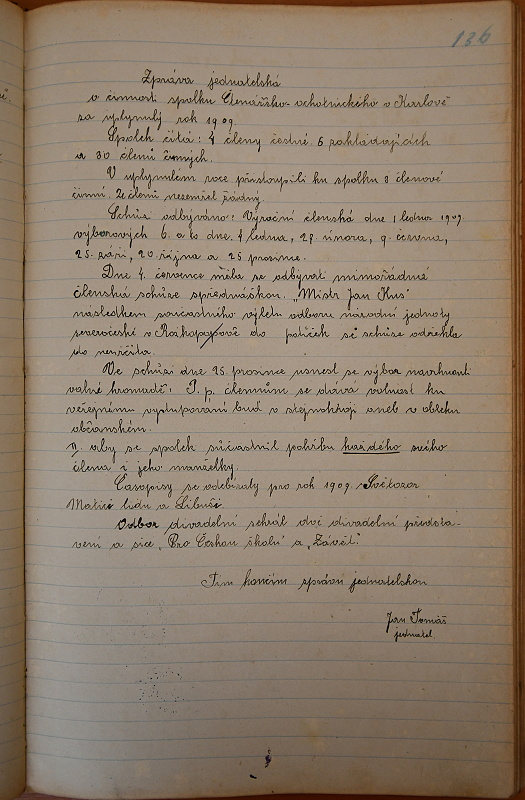 136
Zpráva jednatelská
o činnosti spolku Čtenářsko-ochotnického v Karlově
za uplynulý rok 1909.
Spolek čítá: 4 členy čestné 5 zakládajících
a 30 členů činných.
V uplynulém roce přistoupili ku spolku 3 členové
činní. Ze členů nezemřel žádný.
Schůze odbýváno: Výroční členská dne 1 ledna 1909.
výborových 6. a to dne. 4 ledna, 28. února, 9. června,
25. září, 20. října a 25 prosince.
Dne 4. července měla se odbývati mimořádná
členská schůze s přednáškou. "Mistr Jan Hus"
následkem součastného výletu odboru národní jednoty
severočeské v do poliček se schůze odřekla
do neurčita.
Ve schůzi dne 25. prosince usnesl se výbor navrhnouti
valné hromadě: I. p. členům se dává volnost ku
veřejnému vystupování buď v stejnokroji aneb v obleku
občanském.
II. aby se spolek súčastnil pohřbu každého svého
člena i jeho manželky.
Časopisy se odebíraly pro rok 1909. Světozor
Matice lidu a Libuše.
Odbor divadelní sehrál dvě divadelní předsta-
vení a sice "Pro Českou školu" a "Závěť."
Tím končím zprávu jednatelskou
Jan Tomáš
jednatel.